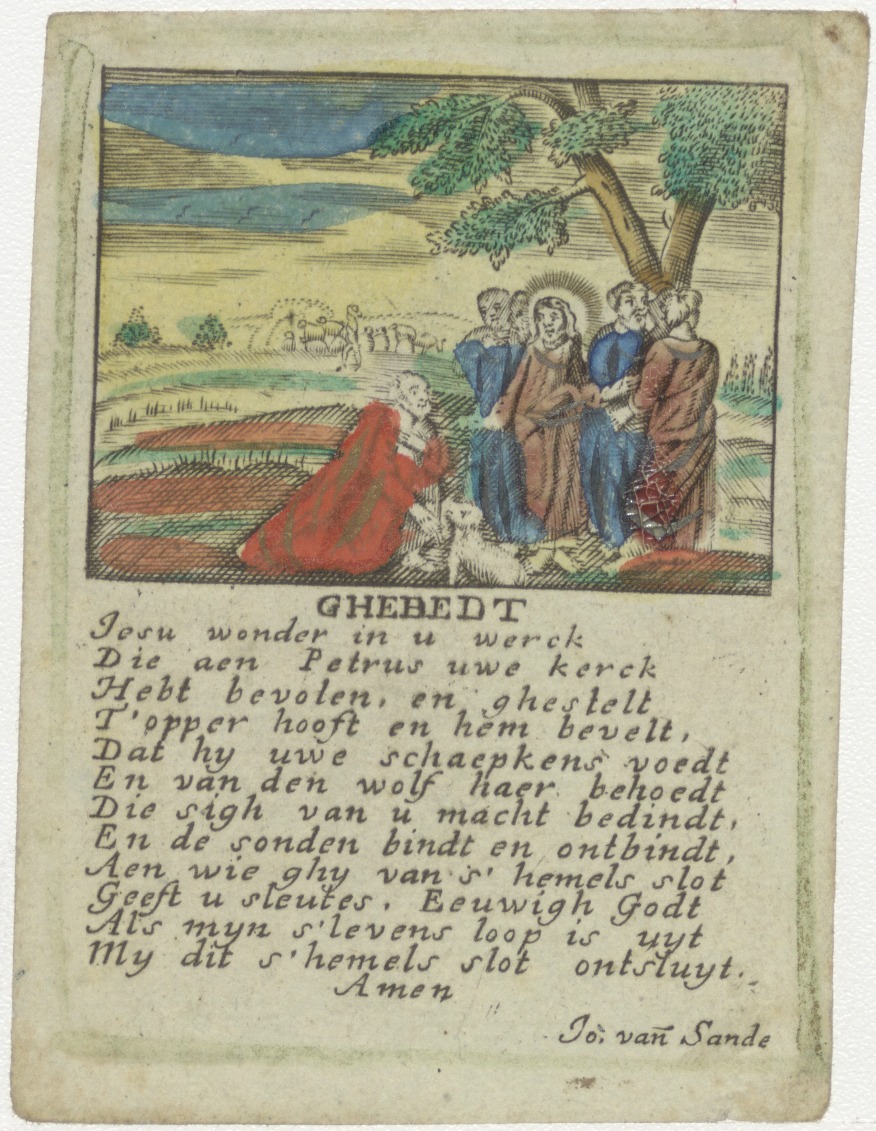 GHEBEDT
Jesu wonder in u werck
Die aen Petrus uwe kerck
Hebt bevolen, en ghestelt
T'opper hooft en hem bevelt,
Dat hy uwe schaepkens voedt
En van den wolf haer behoedt
Die sigh van u macht bedindt,
En de sonden bindt en ontbindt,
Aen wie ghy van s' hemels slot
Geeft u sleutes, Eeuwigh Godt
Als myn s'levens loop is uyt
My dit s'hemels slot ontsluyt.
Amen
Jo: van̄ Sande